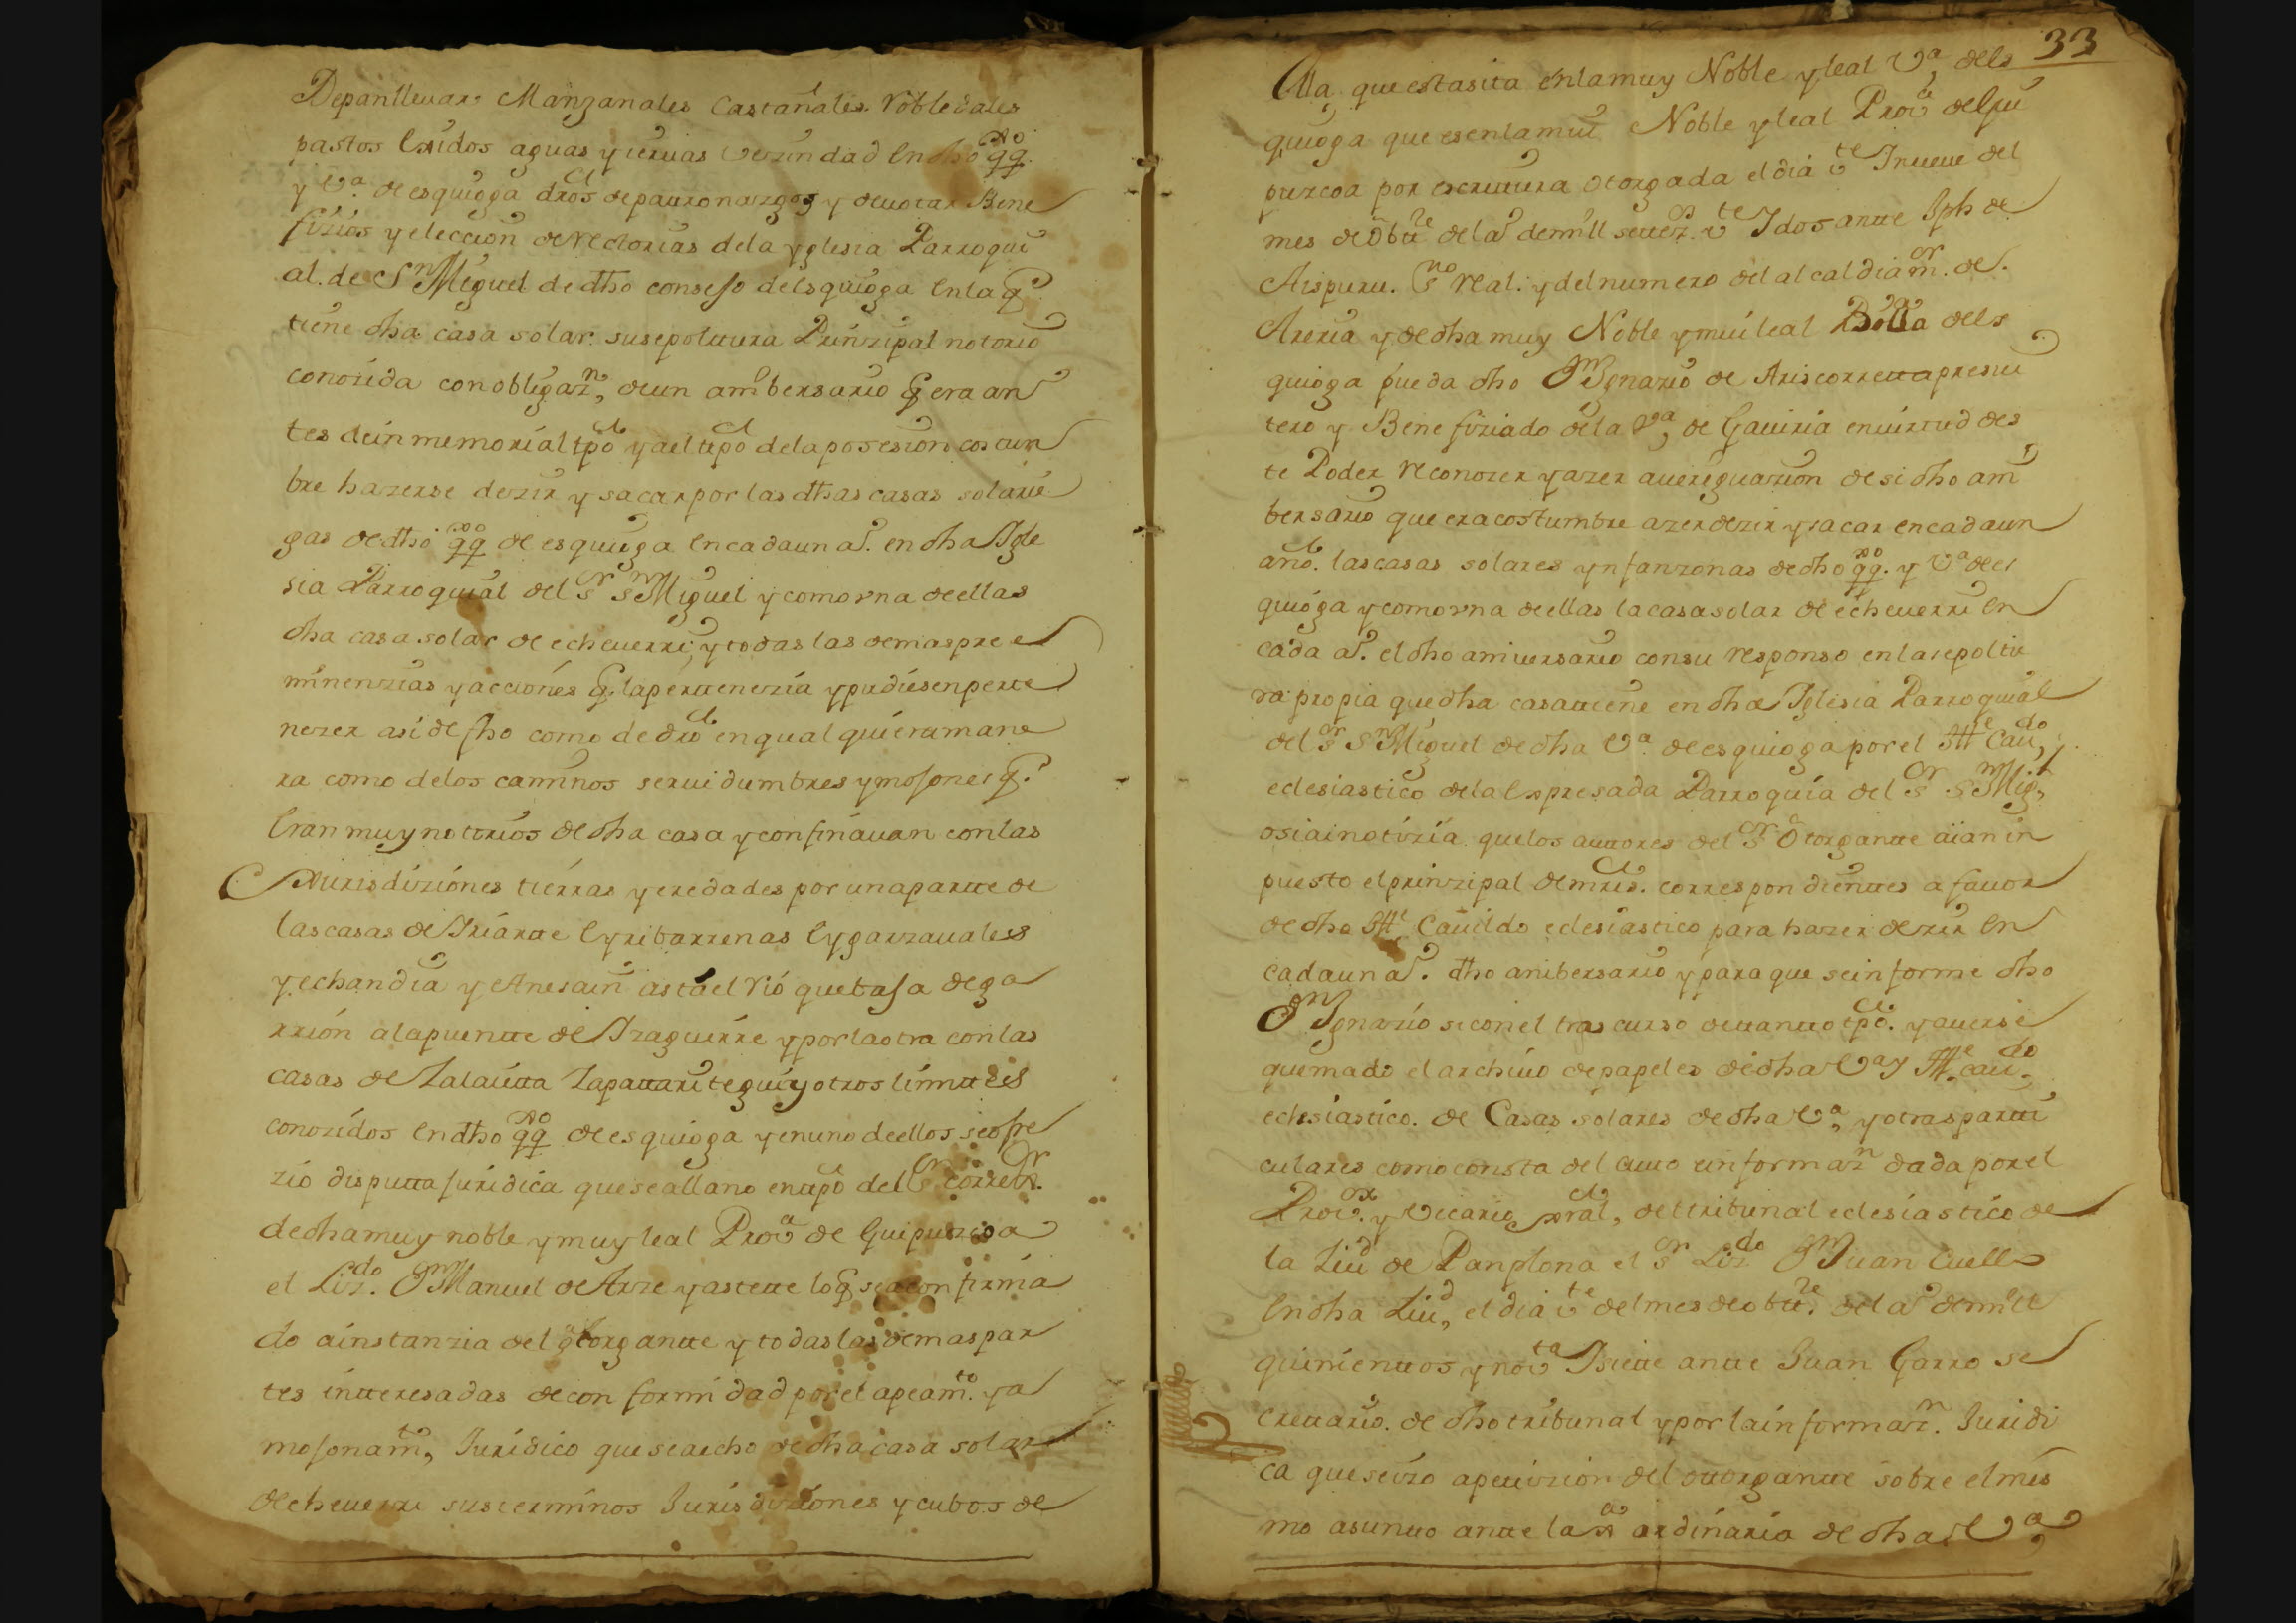 Depanllenar Manzanales Castañales Robledales
pastos Exidos aguas yieruas Vezindad En dho qq.ᴬᵒ
y Vᵃ. de esquioga dros depattronazgos y deuotar Bene
fizios y eleccion de Rectorias dela yglesia Parroqui
al. de Sⁿ Miguel de dho consejo de esquioga En la q̃
tiene dha casa solar. susepolttura Prinzipal notorio
conozida con obligazⁿ, deun ambersario q̃ era an
tes deinmemorial tpõ y ael tipo dela posesion costum
bre hazerse dezir y sacar por las dhas casas solarie
gas dedho qq de esquioga En cadaun aº. en dha Igle
sia Parroquial del Sʳ Sⁿ Miguel y como vna deellas
dha casa solar de echeuerri, y todas las demas pre e
minenzias y acciones q̃ la perttenezia y pudiesen pertte
nezer asi de fho como de dro en qual quiera mane
ra como delos caminos seruidumbres y mojones q̃.
Eran muy nottorios de dha casa y confinauan con las
Jurisdiziones tierras y eredades por una partte de
las casas de Iriartte Eyribarrenas Eygarzauales
y echandia y Anesain asta el rio quebaja dega
rrion ala puentte de Izaguirre y por la otra con las
casas de Zalautta Zapattaritegui y otros limittes
conozidos En dho qq de esquioga y enuno de ellos se ofre
zio disputta juridica que se allano en ttpõ del Sʳ Correxʳ.
de dha muy noble y muy leal Provᵃ de Guipuzcoa
el Lizᵈᵒ. Dⁿ Manuel de Arze y astette lo q̃ sea confirma
do ainstanzia del ottorgantte y todas las demas par
tes intteresadas de conformidad por el apeamᵗᵒ. y a
mojonamᵗᵒ, Juridico que se aecho de dha casa solar
de echeuerri sus terminos Jurisdiziones y cubos de
33
Ella que esta sita en la muy Noble y leal Vᵃ, de es
quioga que es en la mui Noble y leal Provᵃ de Gui
puzcoa por escrittura Otorgada el dia vᵗᵉ Inueue del
mes de Obttʳᵉ dela º demill settezˢ. vᵗᵉ Idos antte Jph de
Aispuru. sⁿᵒ real. y del numero del alcaldia mʳ. de.
Areria y de dha muy Noble y mui leal Villa de es
quioga pueda dho Dⁿ Ygnazio de Ariscorretta presui
tero y Benefiziado de la Vᵃ, de Gauiria en uirtud des
te Poder reconozer y azer aueriguazion de si dho am
bersario que era costumbre azer dezir y sacar en cada un
año. las casas solares ynfanzonas de dho qq. y Vᵃ de es
quioga y como vna de ellas la casa solar de echeuerri En
cada aº. el dho aniuersario con su responso en la sepoltu
ra propia que dha casa ttiene en dha Iglesia Parroquial
del Sʳ Sⁿ Miguel de dha Vᵃ. de esquioga por el Ittᵉ Cauᵈᵒ,
eclesiastico dela Espresada Parroquia del Sʳ Sⁿ Migˡ,
o si ai notizia que los auttores del Sʳ Otorgantte aian in
puesto el prinzipal demrs. correspondienttes a fauor
de dho Ittᵉ Cauildo eclesiastico para hazer dezir En
cada un aº. dho anibersario y para que se informe dho
Dⁿ Ygnazio si con el tras curso de ttantto tpõ. y auerse
quemado el archiuo de papeles de dha Vᵃ y Ittᵉ cauᵈᵒ.
eclesiastico. de Casas solares de dha Vᵃ, y otras partti
culares como consta del autto e informazⁿ dada por el
Provʳ. y Vicario gral, del tribunal eclesiastico de
la Ziuᵈ de Panplona el Sʳ Lizᵈᵒ Dⁿ Juan Cuello
En dha Ziuᵈ, el dia vᵗᵉ del mes de obttʳᵉ. del aº demill
quinienttos y novᵗᵃ Isiette antte Juan Garro se
crettario. de dho tribunal y por la informazⁿ. Juridi
ca que se izo apettizion del ottorgantte sobre el mis
mo asuntto antte la ordinaria de dha Vᵃ